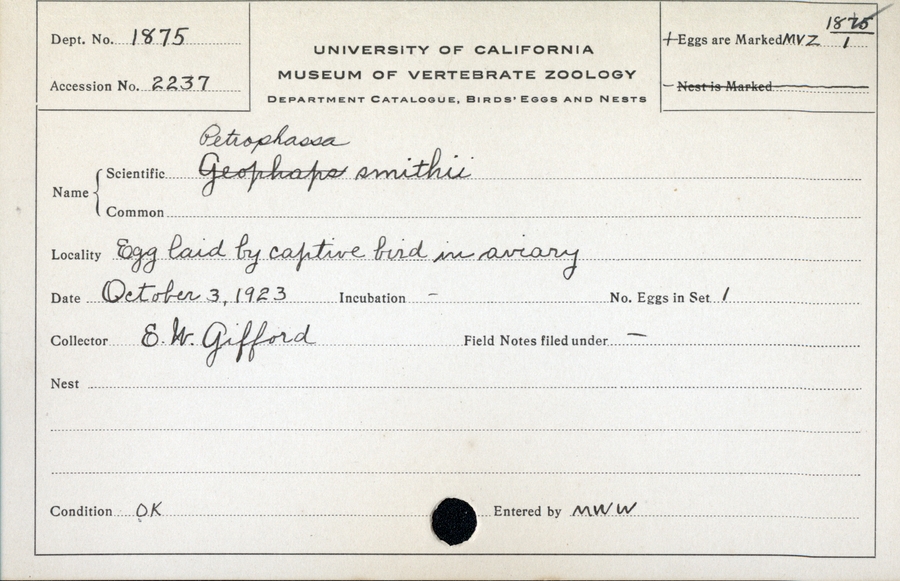 Dept. No. 1875
Accession No. 2237
UNIVERSITY OF CALIFORNIA
MUSEUM OF VERTEBRATE ZOOLOGY
DEPARTMENT CATALOGUE, BIRDS' EGGS AND NESTS
1875
+Eggs are Marked MVZ 1
Nest is Marked
Petrophassa
Name { Scientific Geophaps smithii
Common
Locality Egg laid by captive bird in aviary
Date October 3, 1923 Incubation – No. Eggs in Set 1
Collector E. W. Gifford Field Notes filed under –
Nest
Condition OK Entered by MWW